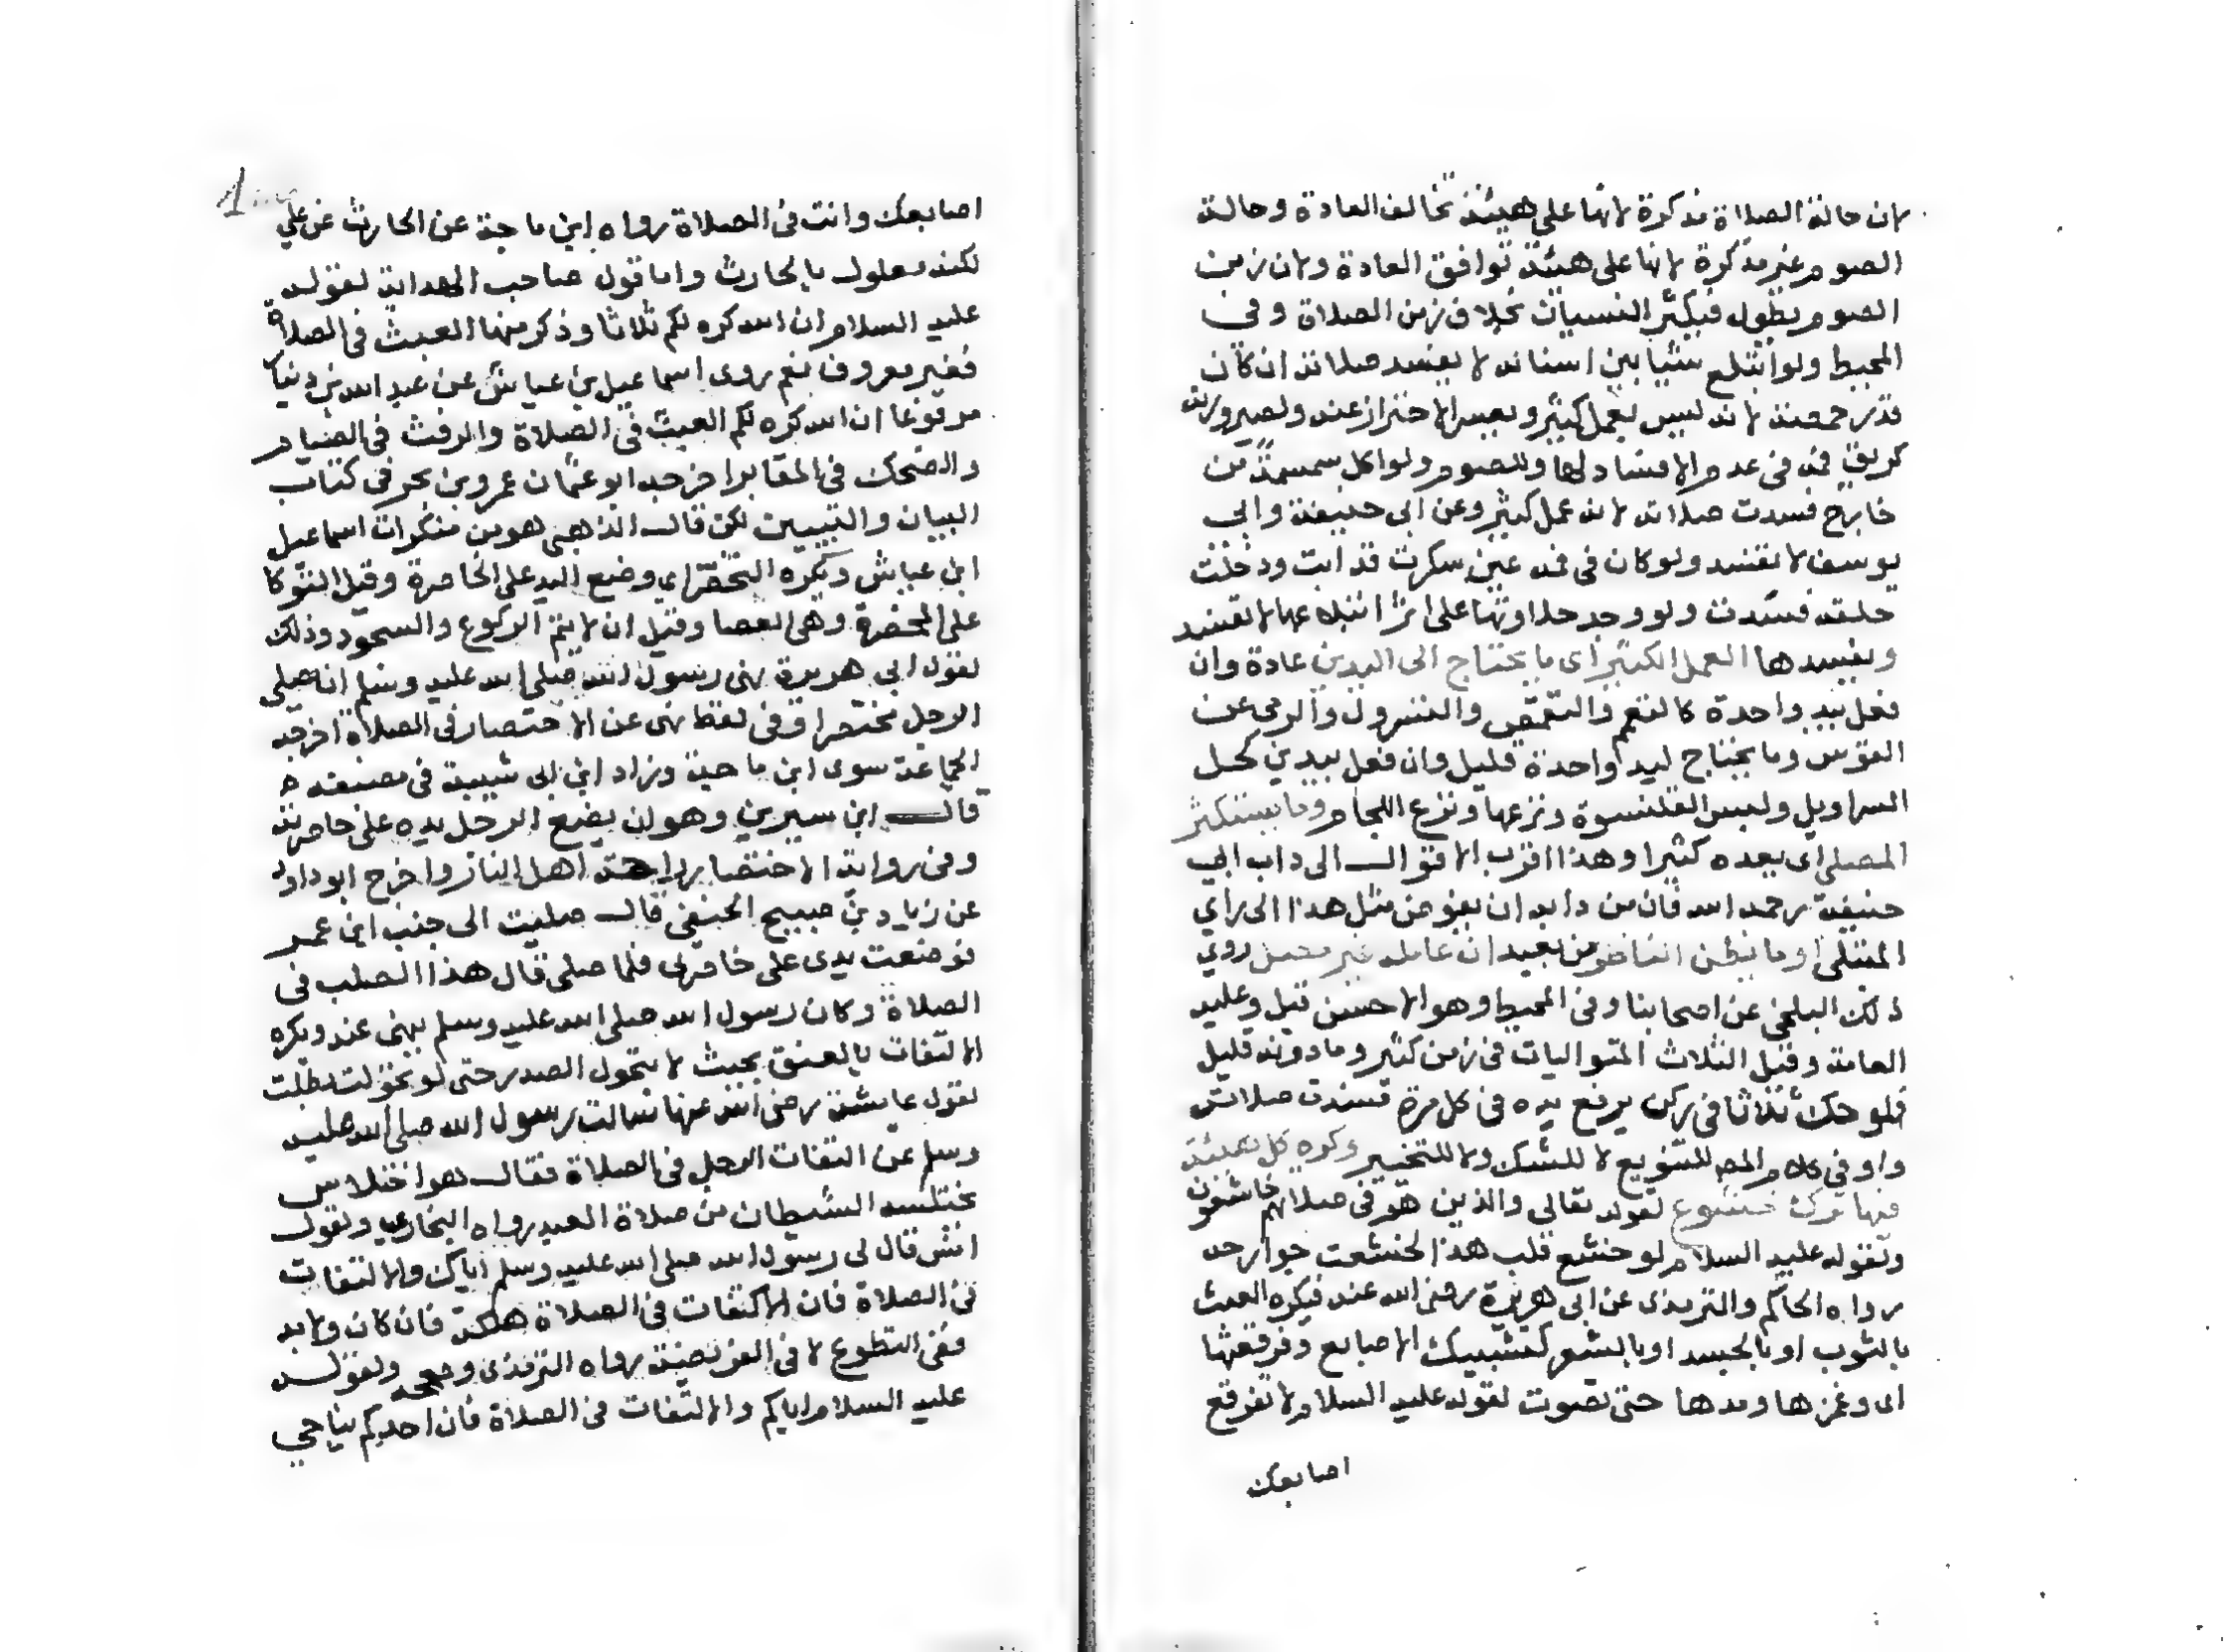 لان حالة الصلاة مذكرة لانها على هيئة تخالف العادة وحالة
الصوم غير مذكرة لانها على هيئة توافق العادة ولان زمن
الصوم يطول فيكثر النسيان بخلاف زمن الصلاة وفي
المحيط ولو ابتلع شيئا بين اسنانه لا يفسد صلاته ان كان
قدر حمصة لانه ليس بعمل كثير ويعسر الاحتراز عنه ولصيرورته
كريق فمه في عدم الافساد لها وللصوم ولو اكل سمسمة من
خارج فسدت صلاته لانه عمل كثير وعن ابي حنيفة وابي
يوسف لا تفسد ولو كان في فمه عين سكرت قد ابت ودخلت
حلقه فسدت ولو وجد حلاوتها على اثر ابتلاعها لا تفسد
ويفسدها العمل الكثير اى ما يحتاج الى اليدين عادة وان
فعل بيد واحدة كالتعمم والتقمص والتسرول والرمي عن
القوس وما يحتاج ليد واحدة قليل وان فعل بيدين كحل
السراويل ولبس القلنسوة ونزعها ونزع اللجام وما يستكثر
المصلي اى يعده كثيرا وهذا اقرب الاقوال الى داب ابي
حنيفة رحمه الله فان من دابه ان يفوض مثل هذا الى راي
المبتلى او ما يظن الناظر من بعيد ان عامله غير مصل روي
ذلك البلخي عن اصحابنا وفى المحيط وهو الاحسن قيل وعليه
العامة وقيل الثلاث المتواليات في زمن كثير وما دونه قليل
فلو حك ثلاثا في ركن يرفع يده في كل مرة فسدت صلاته
واو في كلام المص للتنويع لا للشك ولا للتخيير وكره كل هيئة
فيها ترك خشوع لقوله تعالى والذين هم في صلاتهم خاشعون
ولقوله عليه السلام لو خشع قلب هذا لخشعت جوارحه
رواه الحاكم والترمذى عن ابى هريرة رضى الله عنه فيكره العبث
بالثوب او بالجسد او بالشعر كتشبيك الاصابع وفرقعتها
اى وغمزها ومدها حتى تصوت لقوله عليه السلام لا تفرقع
اصابعك
اصابعك وانت في الصلاة رواه ابن ماجة عن الحارث عن علي
لكنه معلول بالحارث واما قول صاحب الهداية لقوله
عليه السلام ان الله كره لكم ثلاثا وذكر منها العبث في الصلاة
فغير معروف نعم روى اسماعيل بن عياش عن عبد الله بن دينار
مرفوعا ان الله كره لكم العبث في الصلاة والرفث في الصيام
والضحك في المقابر اخرجه ابو عثمان عمرو بن بحر في كتاب
البيان والتبيين لكن قال الذهبي هو من منكرات اسماعيل
ابن عياش ويكره التخصر اي وضع اليد على الخاصرة وقيل التوكا
على المخصرة وهى العصا وقيل ان لا يتم الركوع والسجود وذلك
لقول ابى هريرة نهى رسول الله صلى الله عليه وسلم ان يصلي
الرجل مختصرا وفى لفظ نهى عن الاختصار في الصلاة اخرجه
الجماعة سوى ابن ماجة وزاد ابن ابى شيبة في مصنفه
قال ابن سيرين وهو ان يضع الرجل يده على خاصرته
وفى رواية الاختصار راحة اهل النار واخرج ابو داود
عن زياد بن صبيح الحنفى قال صليت الى جنب ابن عمر
فوضعت يدى على خاصرتى فلما صلى قال هذا الصلب في
الصلاة وكان رسول الله صلى الله عليه وسلم ينهى عنه ويكره
الالتفات بالعنق بحيث لا يتحول الصدر حتى لو تحولت بطلت
لقول عايشة رضى الله عنها سالت رسول الله صلى الله عليه
وسلم عن التفات الرجل فى الصلاة فقال هو اختلاس
يختلسه الشيطان من صلاة العبد رواه البخاري ولقول
انس قال لى رسول الله صلى الله عليه وسلم اياك والالتفات
فى الصلاة فان الالتفات فى الصلاة هلكة فان كان ولابد
ففى التطوع لا فى الفريضة رواه الترمذى وصححه ولقوله
عليه السلام اياكم والالتفات فى الصلاة فان احدكم يناجي